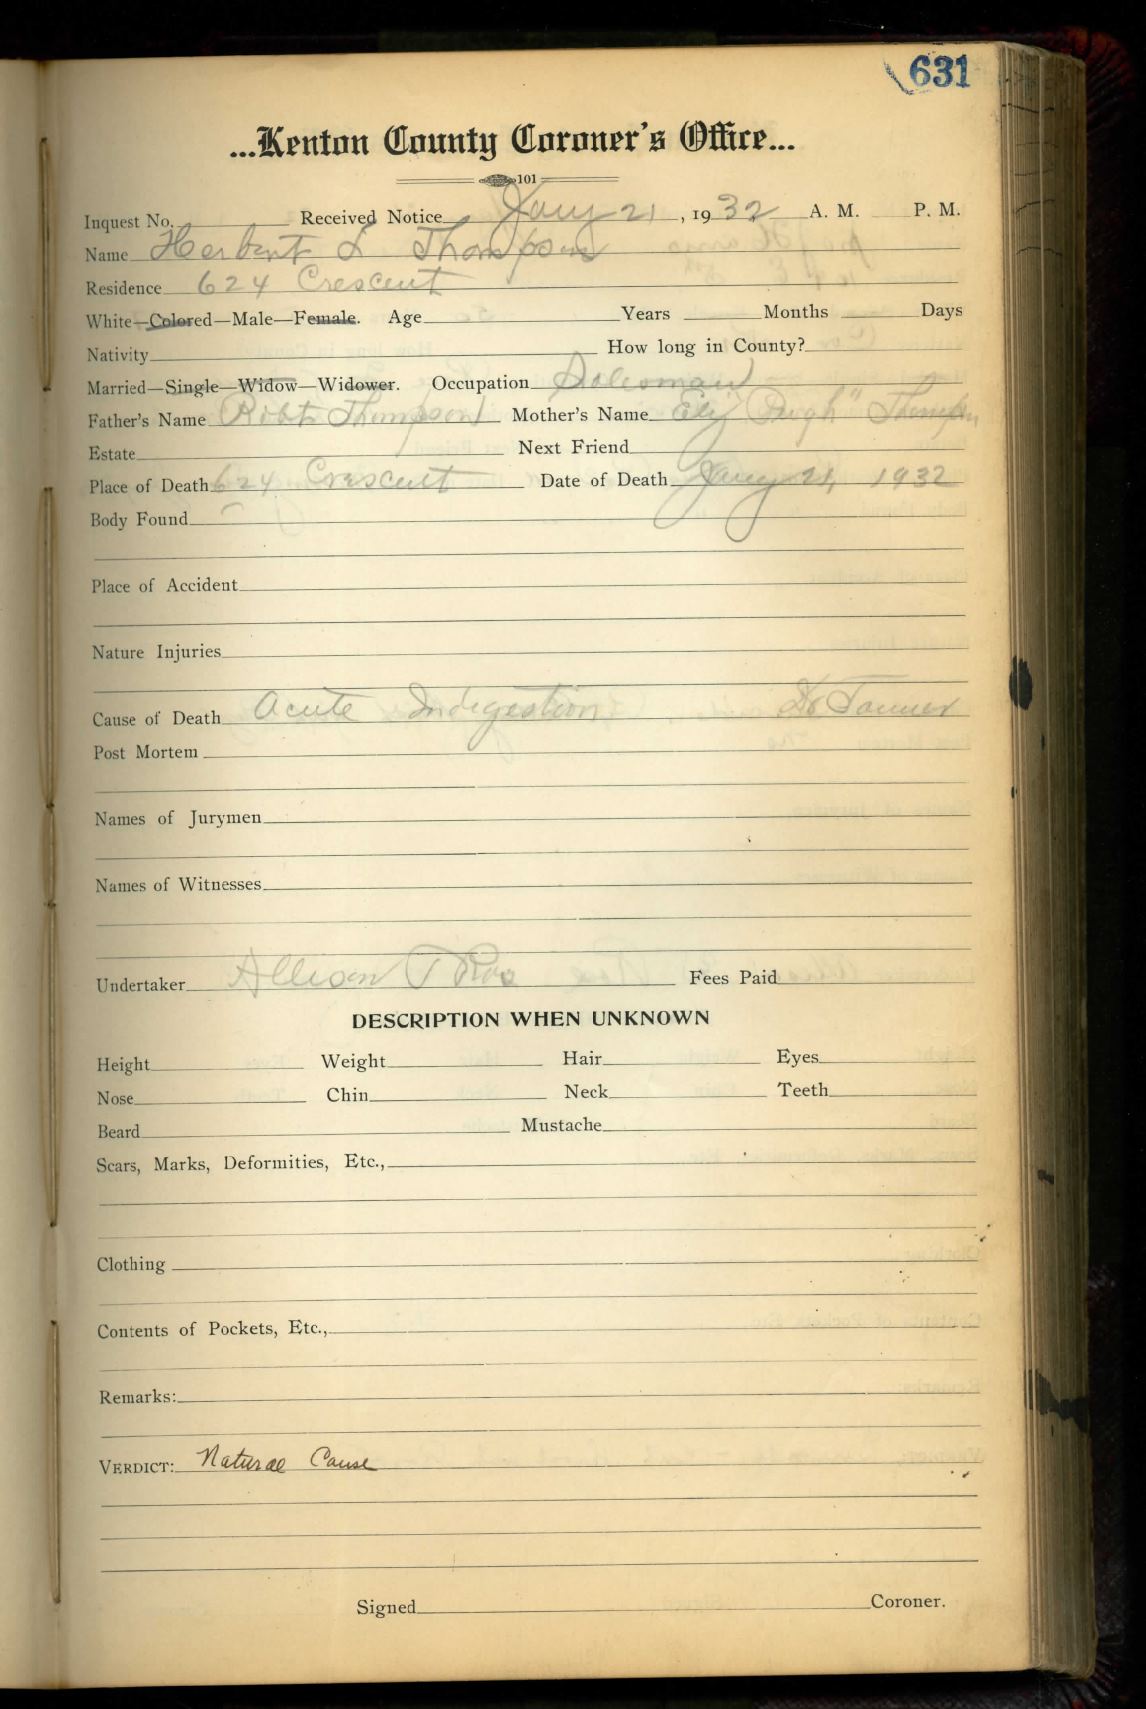 631
...Kenton County Coroner's Office...
101
Inquest No. Received Notice Jany 21, 1932 A. M. P. M.
Name Herbert L Thompson
Residence 624 Crescent
White—Colored—Male—Female. Age Years Months Days
Nativity How long in County?
Married—Single—Widow—Widower. Occupation Salesman
Father's Name Robt Thompson Mother's Name Eliz "Pugh" Thompson
Estate Next Friend
Place of Death 624 Crescent Date of Death Jany 21, 1932
Body Found
Place of Accident
Nature Injuries
Cause of Death Acute Indigestion Dr Tanner
Post Mortem
Names of Jurymen
Names of Witnesses
Undertaker Allison Fees Paid
DESCRIPTION WHEN UNKNOWN
Height Weight Hair Eyes
Nose Chin Neck Teeth
Beard Mustache
Scars, Marks, Deformities, Etc.,
Clothing
Contents of Pockets, Etc.,
Remarks:
VERDICT: Natural Cause
Signed Coroner.